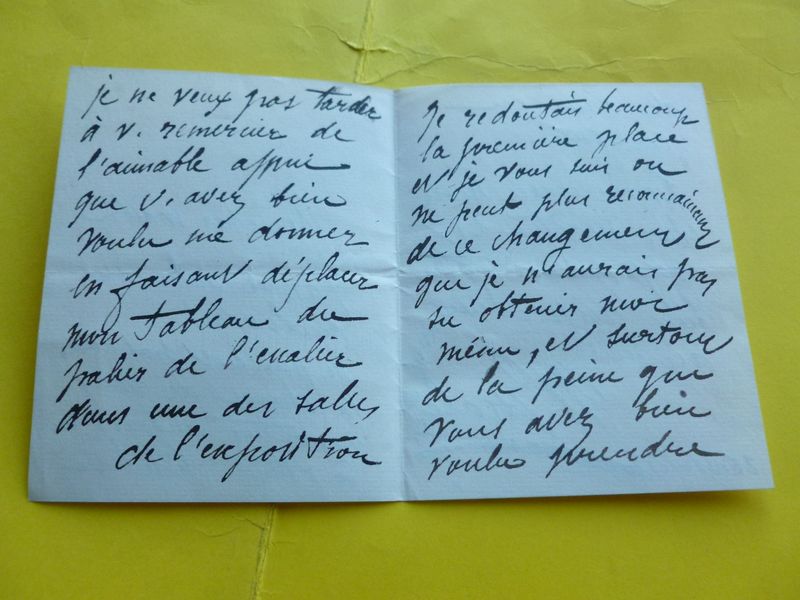 je ne veux pas tarder
à v. remercier de
l'aimable appui
que v. avez bien
voulu me donner
en faisant déplacer
mon tableau du
palier de l'escalier
dans une des salles
de l'exposition
Je redoutais beaucoup
la première place
et je vous suis on
ne peut plus reconnaissant
de ce changement
que je n'aurais pas
su obtenir moi
même, et surtout
de la peine que
vous avez bien
voulu prendre